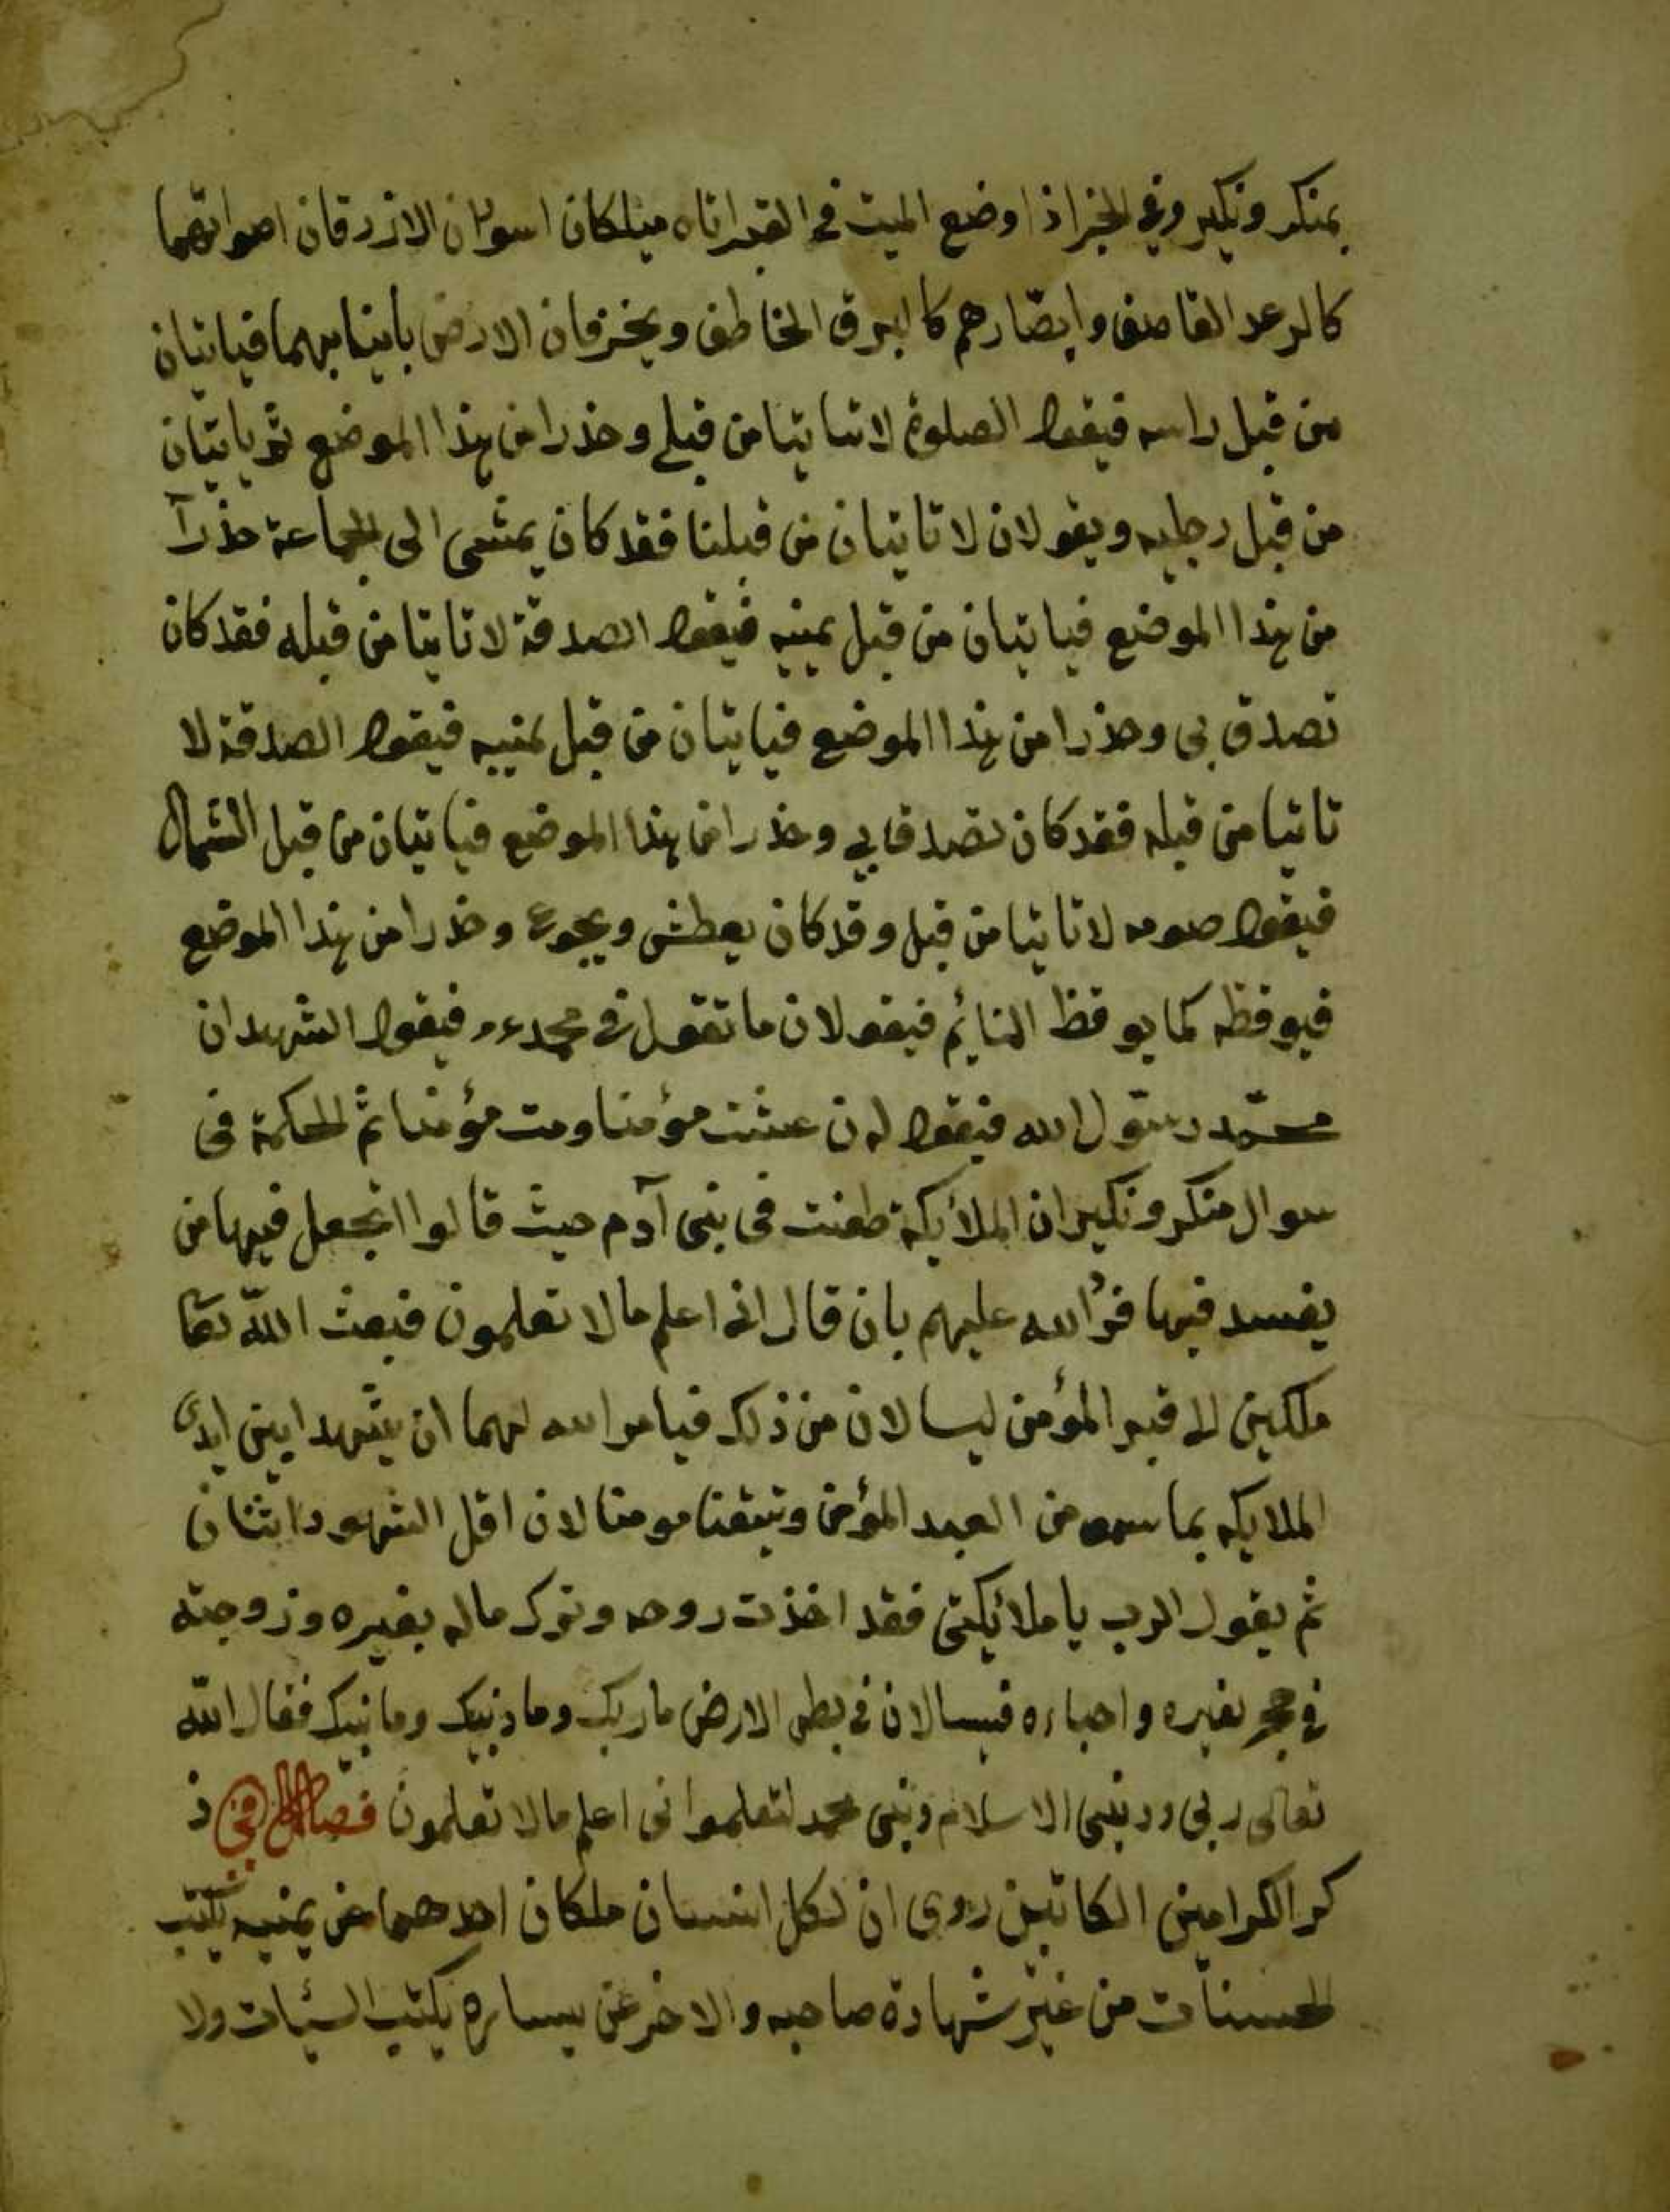 بمنكر ونكير وفي الخبر اذا وضع الميت في القبر اتاه ميلكان اسودان الازرقان اصواتهما
كالرعد القاصف وابصارهم كا لبرق الخاطف ويخرفان الارض بانيابهما فياتيان
من قبل راسه فيقول الصلوة لاتاتيا من قبلي وحذرا من هذا الموضع ثم ياتيان
من قبل رجليه ويقولان لا تاتيان من قبلنا فقد كان يمشى الى الجماعة حذرا
من هذا الموضع فياتيان من قبل يمينه فيقول الصدقة لا تاتيا من قبله فقد كان
تصدق بي وحذرا من هذا الموضع فياتيان من قبل يمينه فيقول الصدقة لا
تاتيا من قبله فقد كان تصدق بي وحذرا من هذا الموضع فياتيان من قبل الشمال
فيقول صومه لا تاتيا من قبل وقد كان يعطش ويجوع وحذرا من هذا الموضع
فيوقظه كما يوقظ النائم فيقولان ما تقول في محمد عم فيقول اشهد ان
محمّد رسول الله فيقول له ن عشت مؤمنا ومت مؤمنا ثم الحكمة فى
سوال منكر ونكير ان الملائكة طعنت فى بنى آدم حيث قالوا اتجعل فيها من
يفسد فيها فردّ الله عليهم بان قال انى اعلم مالا تعلمون فبعث اللّه تعا
ملكين الى قبر المؤمن ليسالان من ذلك فيامر الله لهما ان يشهدا بين ايدى
الملايكه بما سمعه من العبد المؤمن مومنا لان اقل الشهود اثنان
ثم يقول الرب يا ملائكتى فقد اخذت روحه وترك ماله بغيره وزوجته
فى حجر بغيره واحباءه فيسالان فى بطن الارض ماربك ومادنيك ومانبيك فقال اللّه
تعالى ربى ودينى الاسلام ونبى محمد لتعلموا انى اعلم مالا تعلمون فصل فى ذ
كر الكرامين الكاتبين روى ان لكل انسان ملكان احدهما عن يمينه يكتب
الحسنات من غير شهادة صاحبه والاخر عن يساره يكتب السئيات ولا